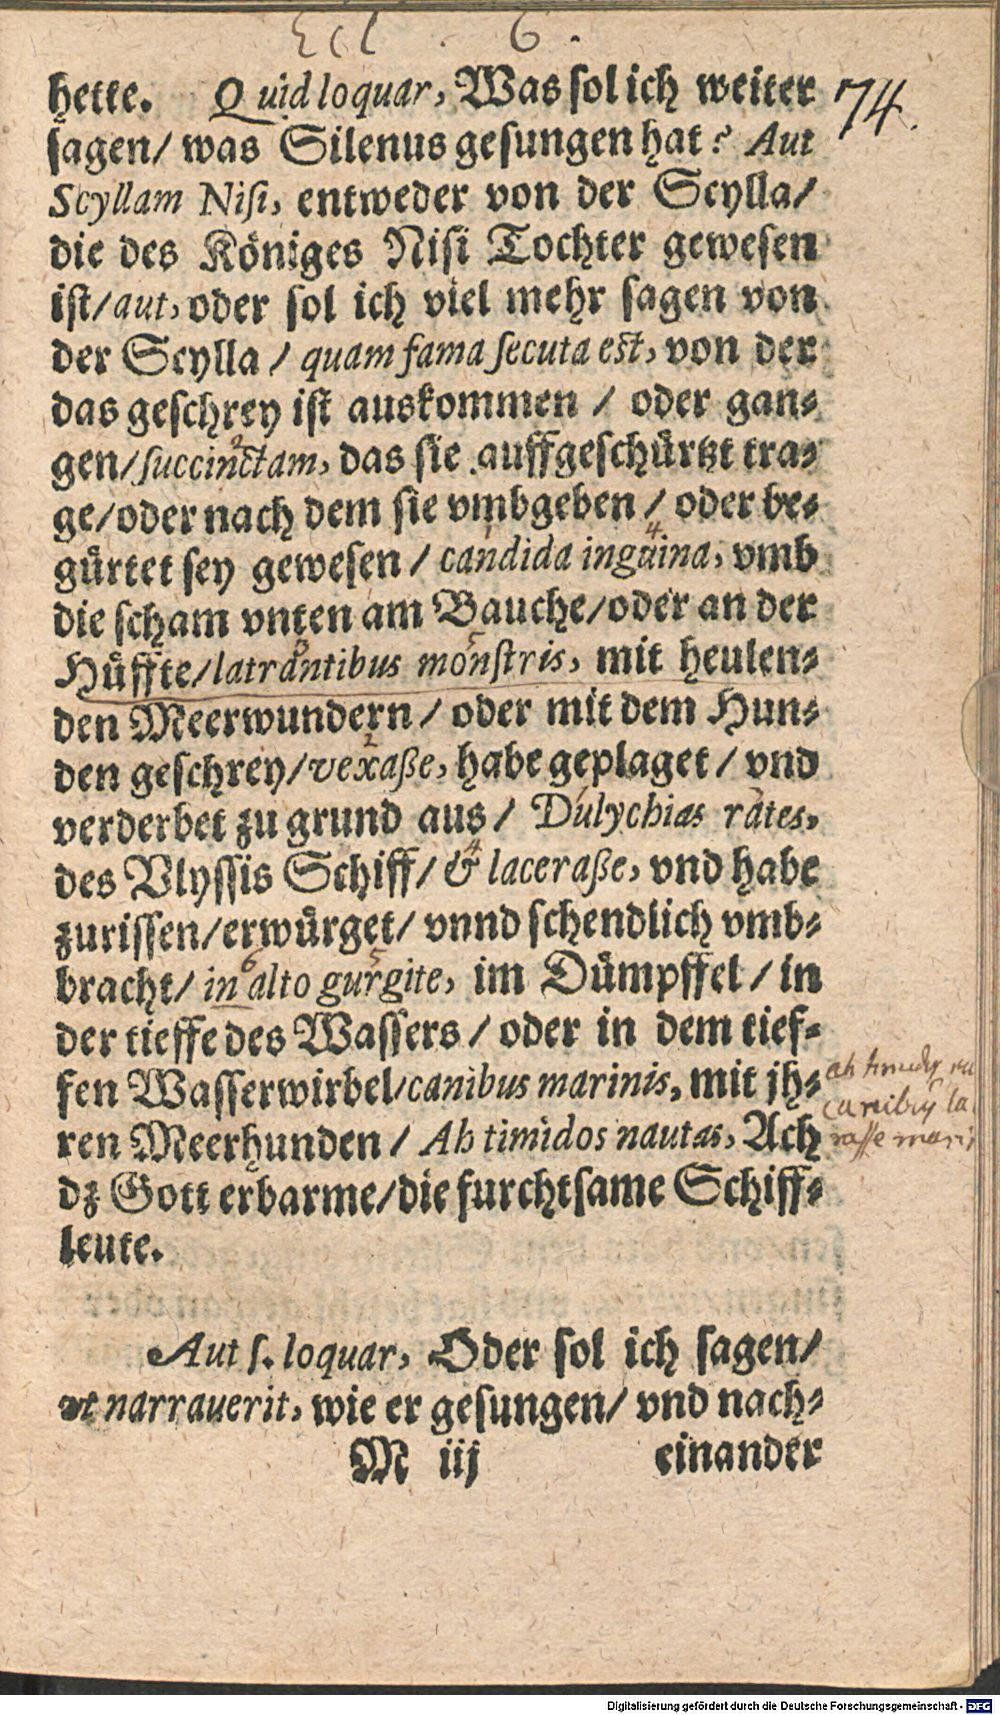 Ecl. 6.
hette. Quid loquar, Was sol ich weiter
74.
sagen/ was Silenus gesungen hat? Aut
Scyllam Nisi, entweder von der Scylla/
die des Königes Nisi Tochter gewesen
ist/ aut, oder sol ich viel mehr sagen von
der Scylla / quam fama secuta est, von der
das geschrey ist auskommen / oder gan-
gen/ succinctam, das sie auffgeschürtzt tra-
ge/ oder nach dem sie vmbgeben / oder be-
gürtet sey gewesen / candida inguina, vmb
die scham vnten am Bauche/ oder an der
Hüffte/ latrantibus monstris, mit heulen-
den Meerwundern / oder mit dem Hun-
den geschrey/ vexaße, habe geplaget / vnd
verderbet zu grund aus / Dulychias rates,
des Vlyssis Schiff/ & laceraße, vnd habe
zurissen/ erwürget/ vnnd schendlich vmb-
bracht/ in alto gurgite, im Dümpffel / in
der tieffe des Wassers / oder in dem tief-
fen Wasserwirbel/ canibus marinis, mit jh-
ren Meerhunden / Ah timidos nautas, Ach
dz Gott erbarme/ die furchtsame Schiff-
leute.
ah timidos
canibus
rasse mari
Aut s. loquar, Oder sol ich sagen/
vt narrauerit, wie er gesungen/ vnd nach-
M iij einander
Digitalisierung gefördert durch die Deutsche Forschungsgemeinschaft - DFG